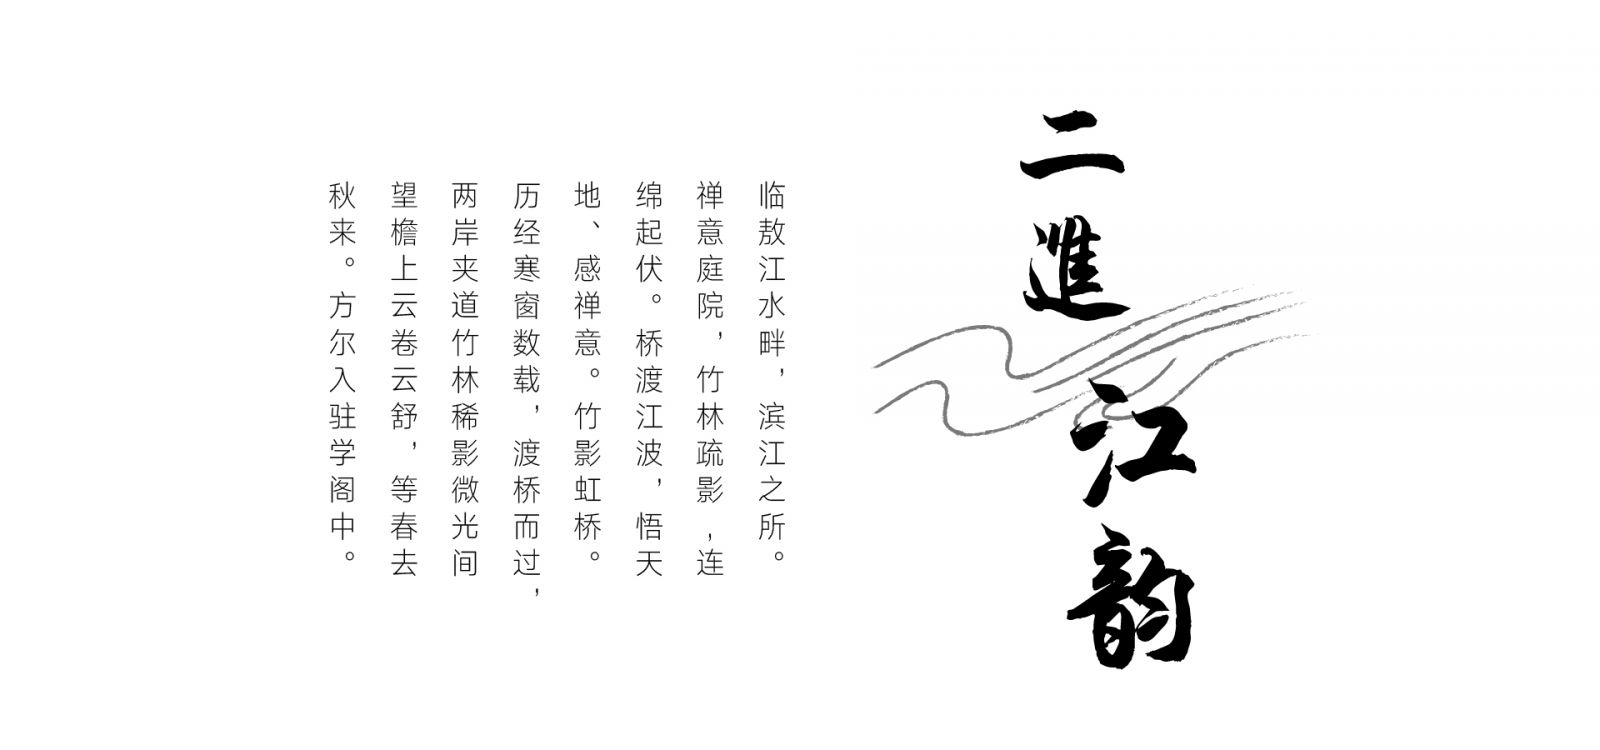 二進江韵
临敖江水畔，滨江之所。
禅意庭院，竹林疏影,连
绵起伏。桥渡江波，悟天
地、感禅意。竹影虹桥。
历经寒窗数载，渡桥而过，
两岸夹道竹林稀影微光间
望檐上云卷云舒，等春去
秋来。方尔入驻学阁中。